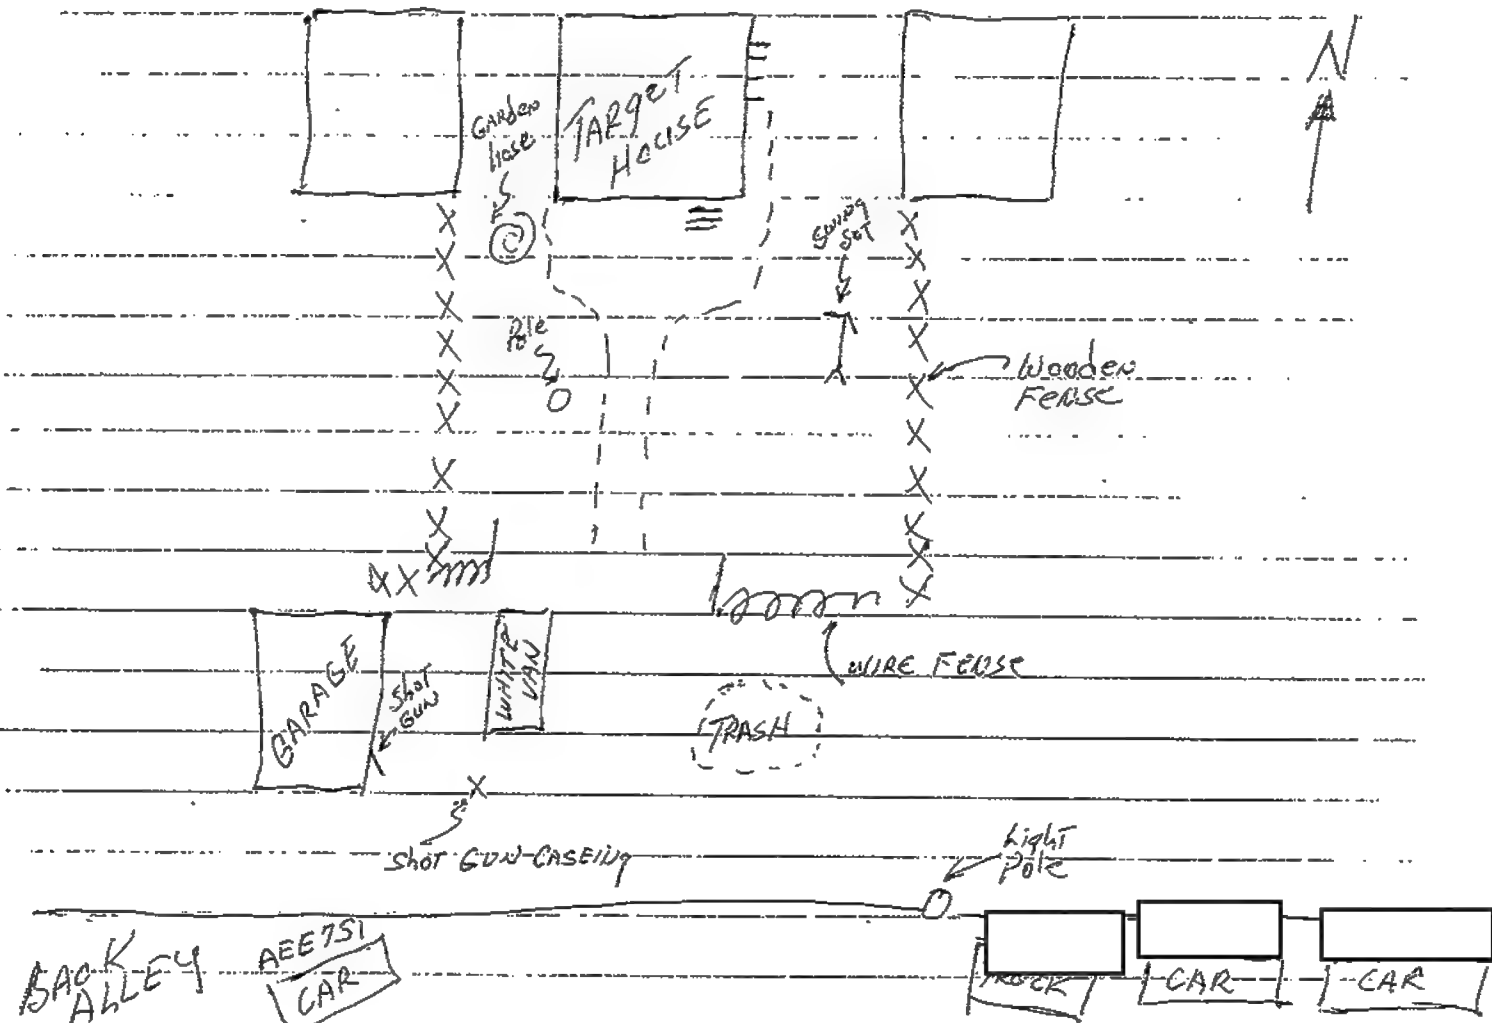 N
GARden
hose
TARgET
HOUSE
SWING
SET
Pole
Wooden
FENSE
WIRE FENSE
GARAGE
SHOT
GUN
WHITE
VAN
TRASH
SHOT GUN-CASEINg
Light
Pole
BACK
ALLEY
AEE751
CAR
TRUCK
CAR
CAR